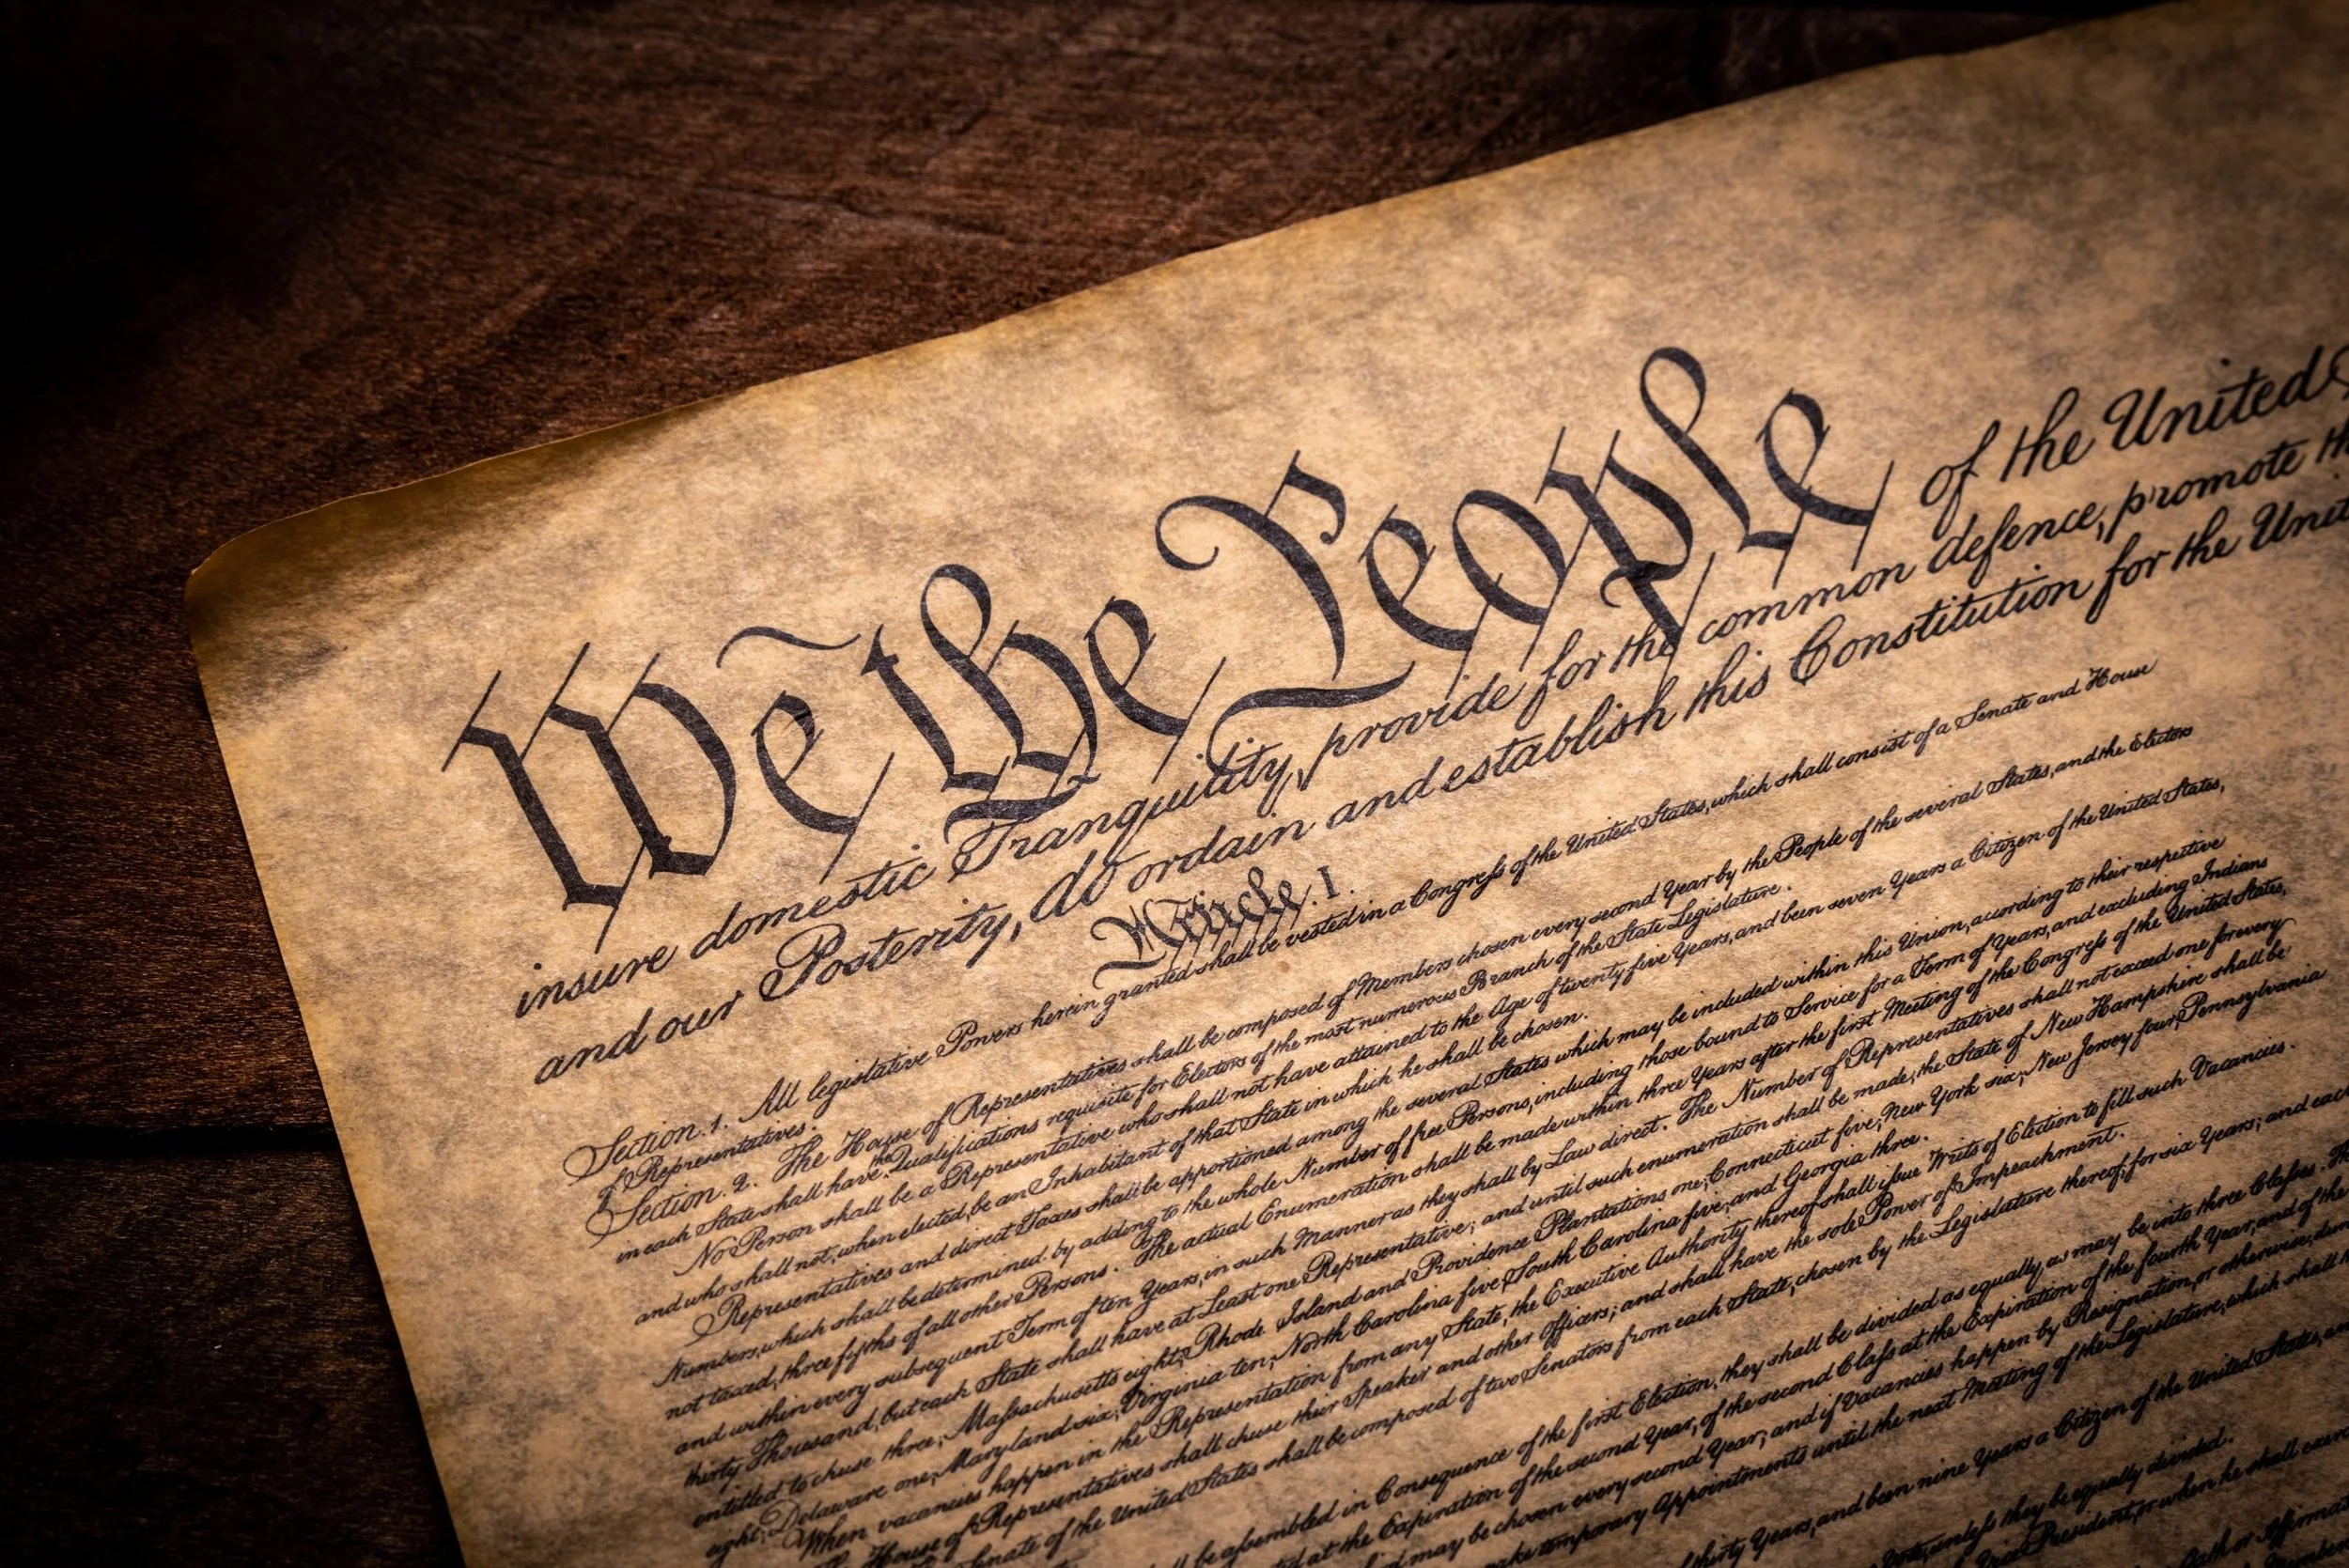 We the People of the United
insure domestic Tranquility, provide for the common defence, promote
and our Posterity, do ordain and establish this Constitution for the
Article. I.
Section. 1. All legislative Powers herein granted shall be vested in a Congress of the United States, which shall consist of a Senate and House
of Representatives.
Section. 2. The House of Representatives shall be composed of Members chosen every second Year by the People of the several States, and the Electors
in each State shall have the Qualifications requisite for Electors of the most numerous Branch of the State Legislature.
No Person shall be a Representative who shall not have attained to the Age of twenty five Years, and been seven Years a Citizen of the United States,
and who shall not, when elected, be an Inhabitant of that State in which he shall be chosen.
Representatives and direct Taxes shall be apportioned among the several States which may be included within this Union, according to their respective
Numbers, which shall be determined by adding to the whole Number of free Persons, including those bound to Service for a Term of Years, and excluding Indians
not taxed, three fifths of all other Persons. The actual Enumeration shall be made within three Years after the first Meeting of the Congress of the United States,
and within every subsequent Term of ten Years, in such Manner as they shall by Law direct. The Number of Representatives shall not exceed one for every
thirty Thousand, but each State shall have at Least one Representative; and until such enumeration shall be made, the State of New Hampshire shall be
entitled to chuse three, Massachusetts eight, Rhode Island and Providence Plantations one, Connecticut five, New York six, New Jersey four, Pennsylvania
eight, Delaware one, Maryland six, Virginia ten, North Carolina five, South Carolina five, and Georgia three.
When vacancies happen in the Representation from any State, the Executive Authority thereof shall issue Writs of Election to fill such Vacancies.
House of Representatives shall chuse their Speaker and other Officers; and shall have the sole Power of Impeachment.
Senate of the United States shall be composed of two Senators from each State, chosen by the Legislature thereof, for six Years; and each
be assembled in Consequence of the first Election, they shall be divided as equally as may be into three Classes.
at the Expiration of the second Year, of the second Class at the Expiration of the fourth Year, and of the
may be chosen every second Year; and if Vacancies happen by Resignation, or otherwise,
temporary Appointments until the next Meeting of the Legislature, which shall
thirty Years, and been nine Years a Citizen of the United States,
unless they be equally divided.
President, or when he shall
Oath or